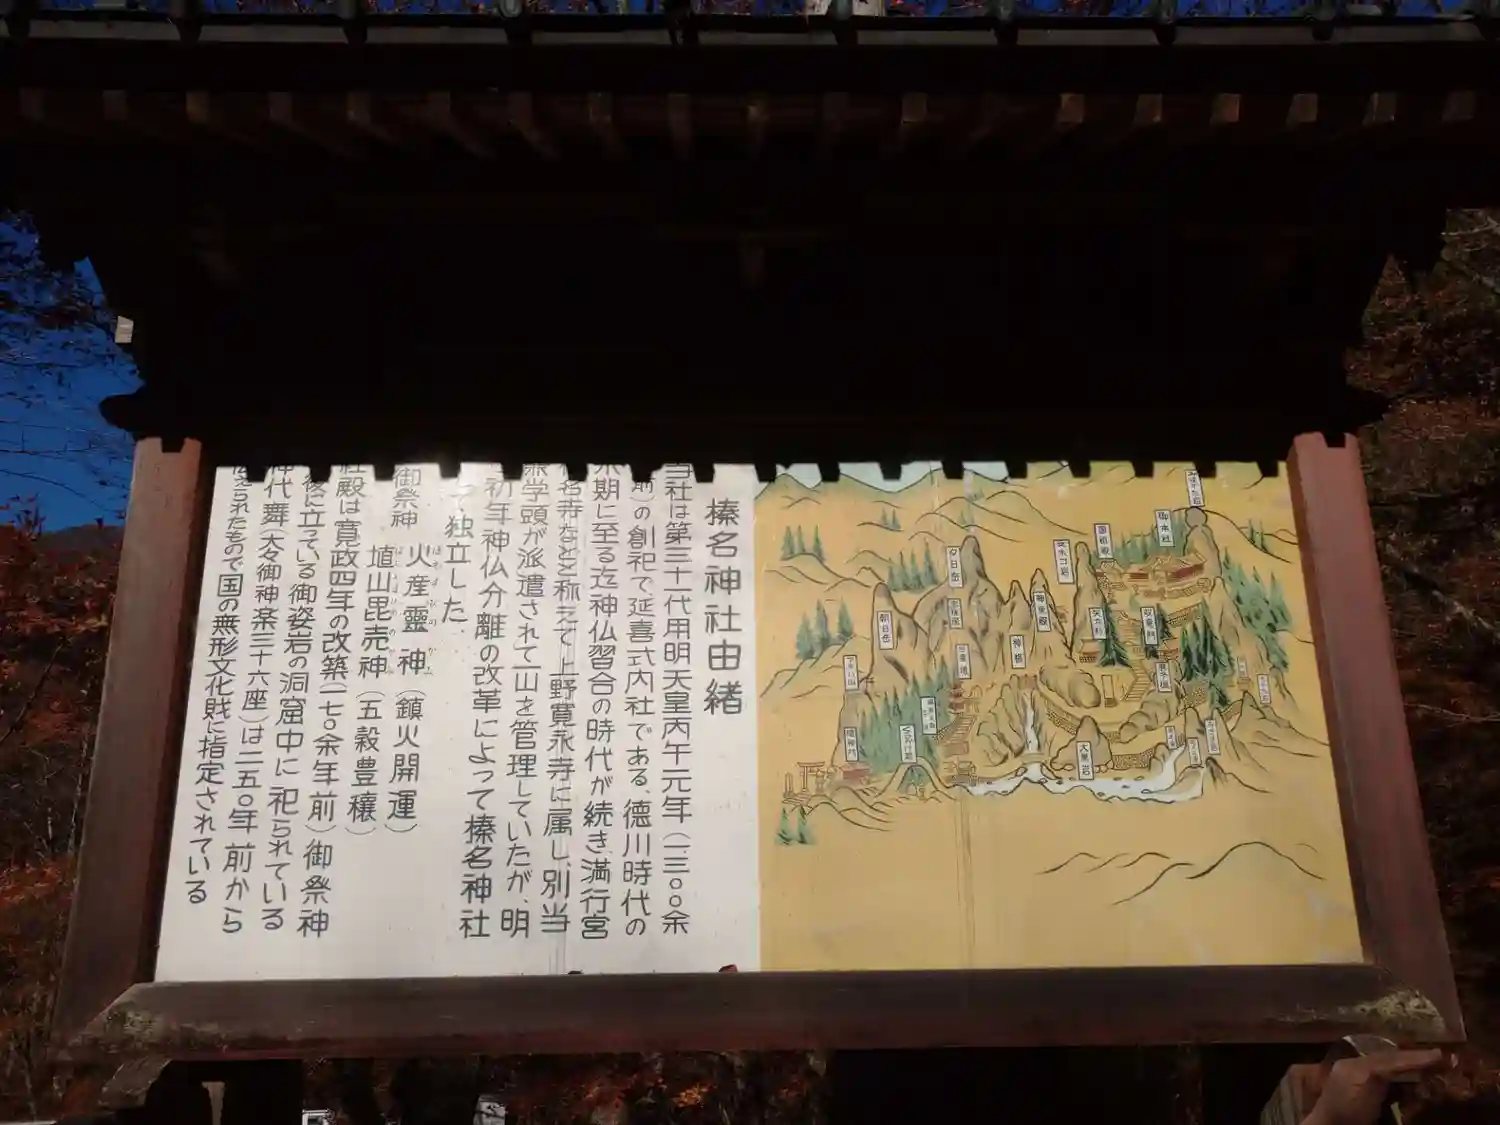 榛名神社由緒
当社は第三十一代用明天皇丙午元年（一三〇〇余
前）の創祀で延喜式内社である、徳川時代の
末期に至る迄神仏習合の時代が続き、満行宮
名寺などと称えて上野寛永寺に属し、別当
兼学頭が派遣されて一山を管理していたが、明
初年神仏分離の改革によって榛名神社
独立した
御祭神 火産霊神（鎮火開運）
埴山毘売神（五穀豊穣）
社殿は寛政四年の改築（一七〇余年前）御祭神
後に立っている御姿岩の洞窟中に祀られている
神代舞（大々御神楽三十六座）は二五〇年前から
伝えられたもので国の無形文化財に指定されている
御本社
国祖殿
夕日岳
朝日岳
神橋
双竜門
矢立杉
大黒岩
随神門